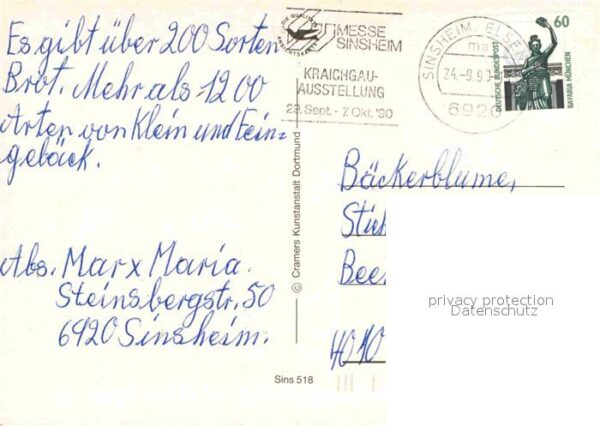 Es gibt über 200 Sorten
Brot. Mehr als 1200
Arten von Klein und Fein-
gebäck.
Abs. Marx Maria.
Steinsbergstr. 50
6920 Sinsheim.
MESSE
SINSHEIM
KRAICHGAU-
AUSSTELLUNG
28. Sept. - 7. Okt. '90
SINSHEIM, ELSENZ
ma
24.-9.90
6920
60
DEUTSCHE BUNDESPOST
BAVARIA MÜNCHEN
© Cramers Kunstanstalt Dortmund
Bäckerblume,
Stich
Bee
4010
privacy protection
Datenschutz
Sins 518